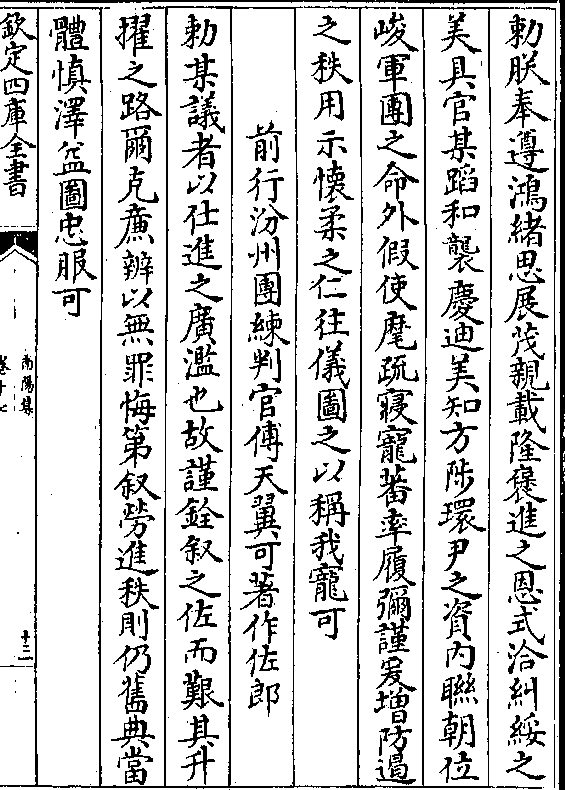 勅朕奉遵鴻緒思展茂親載隆襃進之恩式洽糾綏之
美具官某蹈和襲慶迪美知方陟環尹之資内聯朝位
峻軍團之命外假使麾疏寝寵蕃率履彌謹爰增防遏
之秩用示懷柔之仁往儀圖之以稱我寵可
前行汾州團練判官傅天翼可著作佐郎
勅某議者以仕進之廣濫也故謹銓叙之佐而艱其升
擢之路爾克亷辦以無罪悔第叙勞進秩則仍舊典當
體慎澤益圖忠服可
欽定四庫全書
南陽集
卷十七
十三